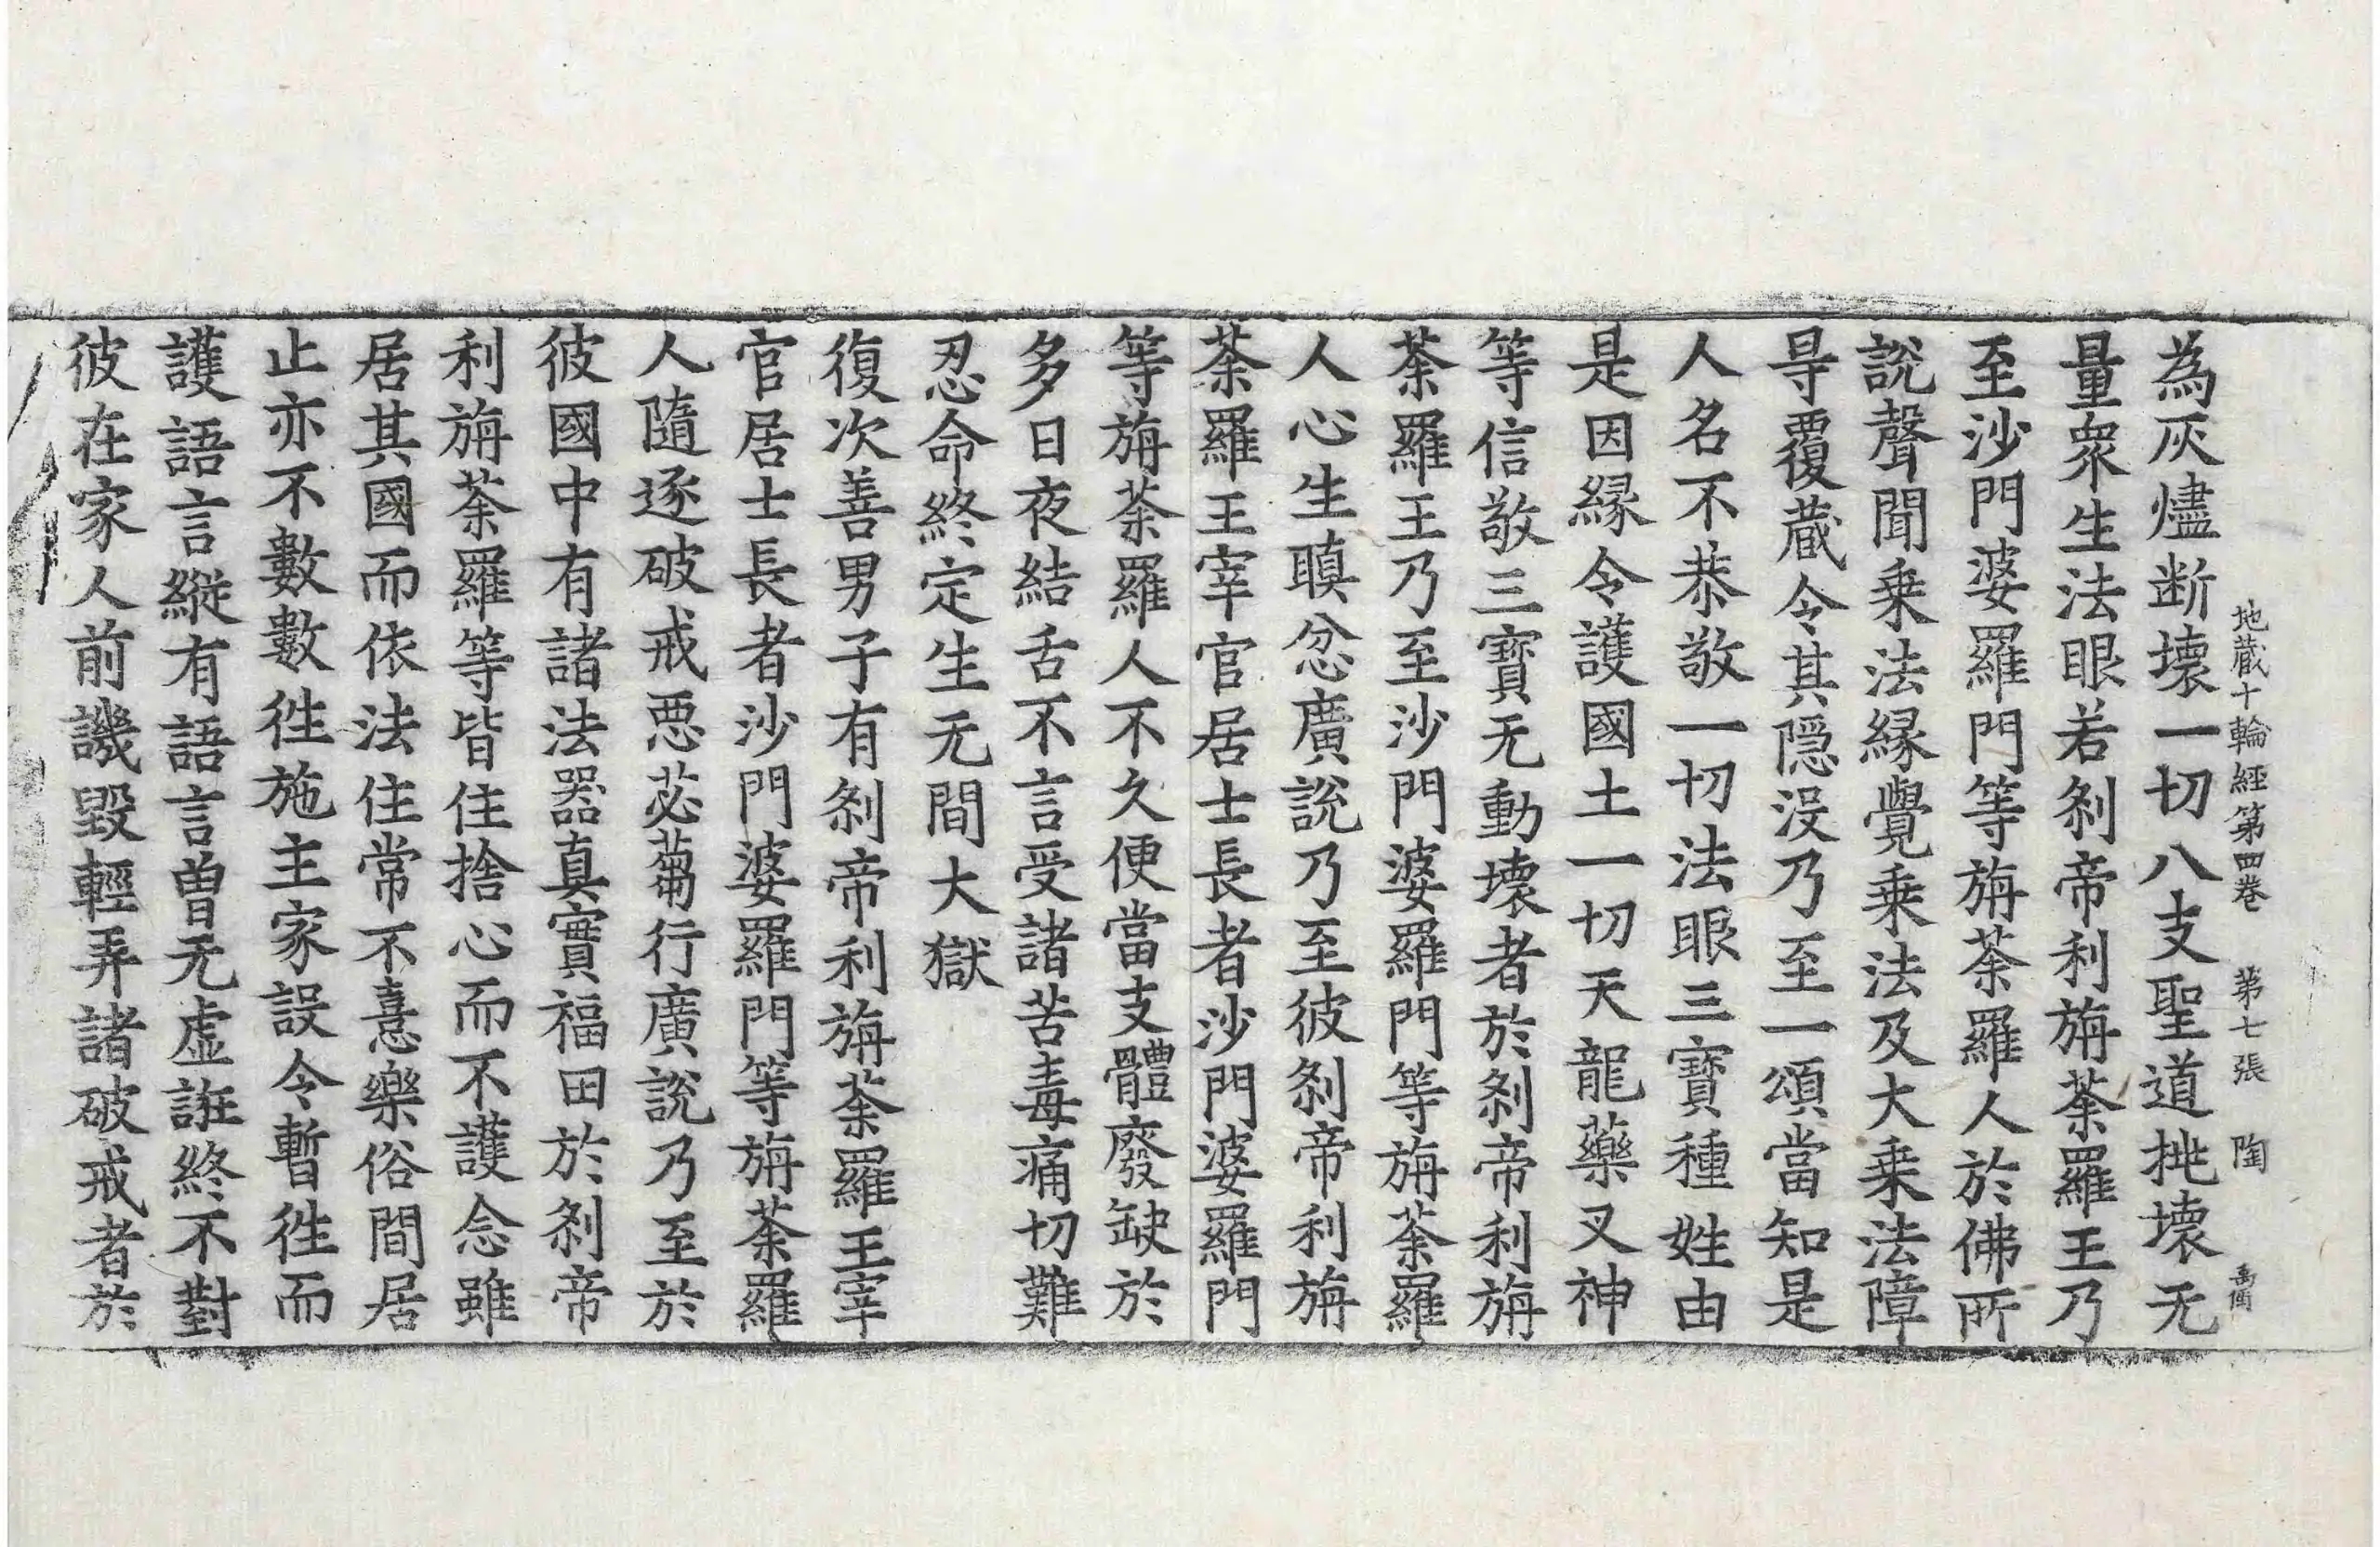 地蔵十輪經第四卷 第七張 陶
為灰燼断壞一切八支聖道挑壞无
量衆生法眼若刹帝利旃荼羅王乃
至沙門婆羅門等旃荼羅人於佛所
說聲聞乗法緣覺乗法及大乗法障
㝵覆蔵令其隠没乃至一頌當知是
人名不恭敬一切法眼三寳種姓由
是因緣令護國土一切天龍藥叉神
等信敬三寳无動壞者於刹帝利旃
荼羅王乃至沙門婆羅門等旃荼羅
人心生瞋忿廣說乃至彼刹帝利旃
荼羅王宰官居士長者沙門婆羅門
等旃荼羅人不久便當支體廢缺於
多日夜結舌不言受諸苦毒痛切難
忍命終定生无間大獄
復次善男子有刹帝利旃荼羅王宰
官居士長者沙門婆羅門等旃荼羅
人隨逐破戒惡苾蒭行廣說乃至於
彼國中有諸法器真實福田於刹帝
利旃荼羅等皆住捨心而不護念雖
居其國而依法住常不憙樂俗間居
止亦不數數徃施主家設令暫徃而
護語言縱有語言曽无虛誑終不對
彼在家人前譏毀輕弄諸破戒者於